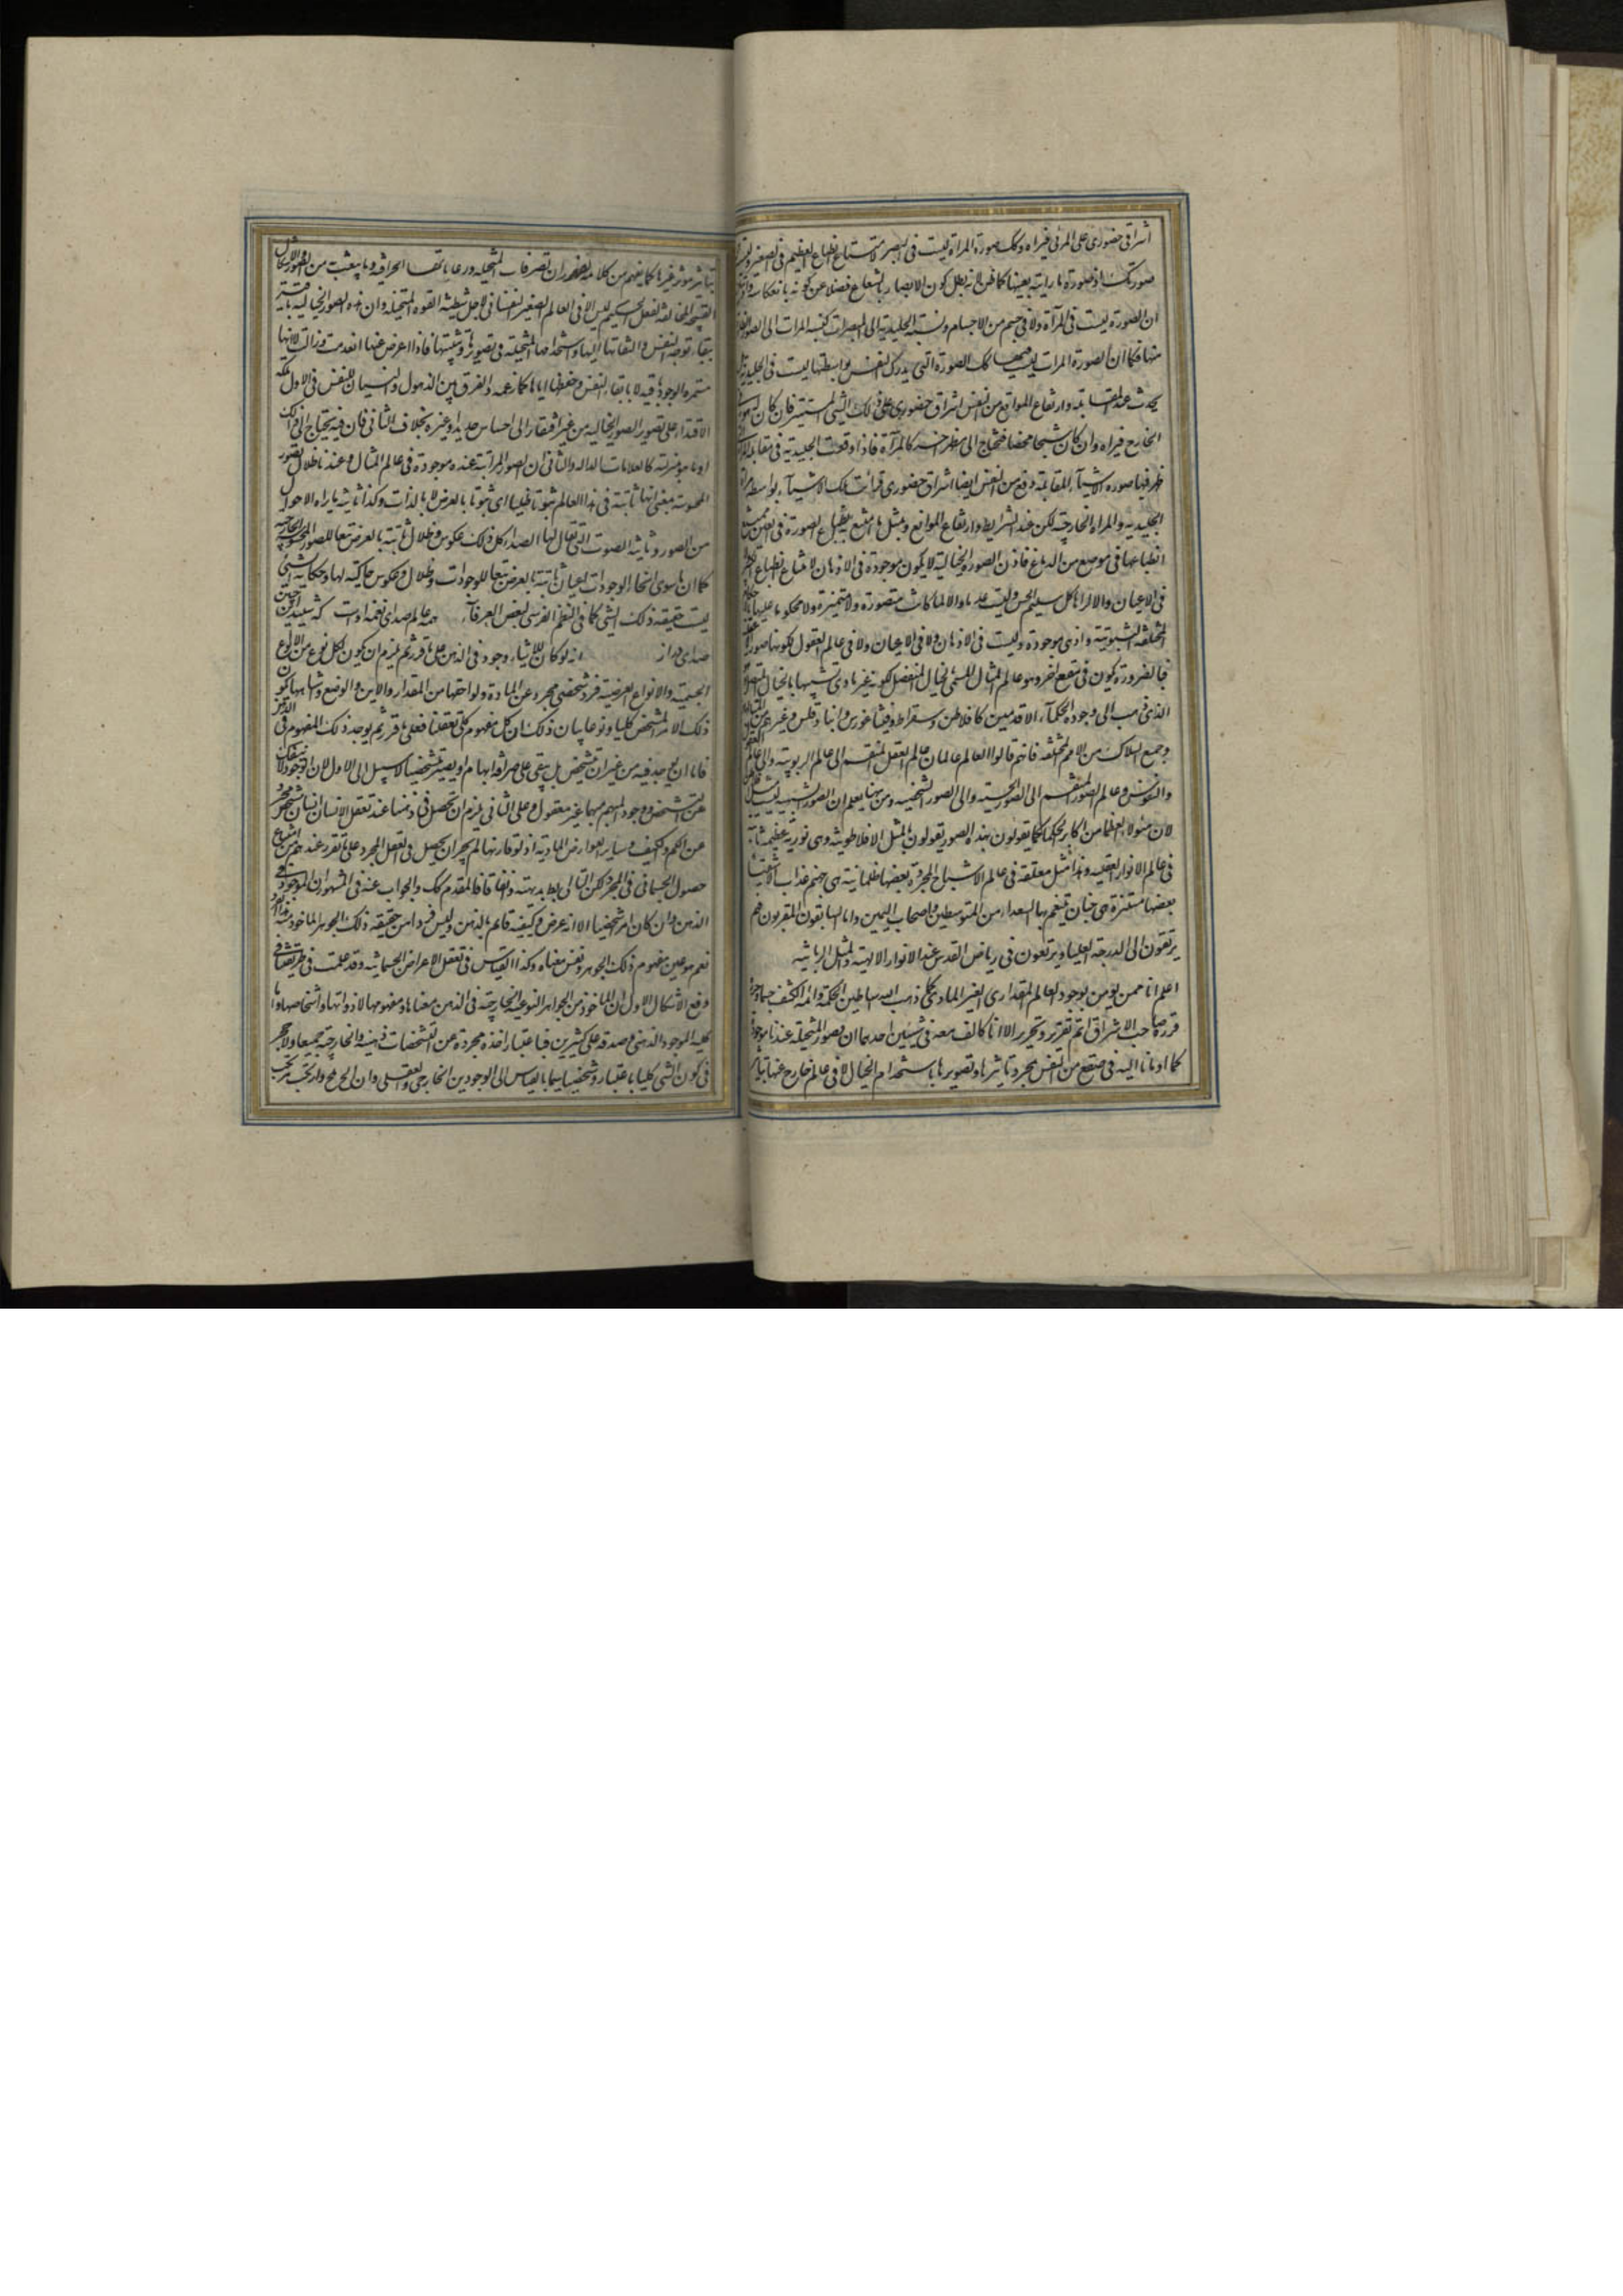 اشراقی حضوری علی المرئی فیراه وکک صورة المرآة لیست فی البصر لامتناع انطباع العظیم فی الصغیر ولیس
صورتک او صورة ما رایته بعینها کما ظن لانه بطل کون الابصار بالشعاع فضلا عن کونه بانعکاسه واذ
ان الصورة لیست فی المرآة ولا فی جسم من الاجسام ونسبة الجلیدیة الی المبصرات کنسبة المرآت الی الصور
منها فکما ان صورة المرات لیست فیها کک الصورة التی یدرک النفس بواسطتها لیست فی الجلیدیة بل
یحدث عند المقابلة وارتفاع الموانع من النفس اشراق حضوری علی ذلک الشئ المستنیر فان کان له هویة فی
الخارج فیراه وان کان شبحا محضا فیحتاج الی مظهر اخر کالمرآة فاذا وقعت الجلیدیة فی مقابلة المرآة
ظهر فیها صورة الاشیآء المقابلة وقع من النفس ایضا اشراق حضوری فرأت تلک الاشیآء بواسطة مرآة
الجلیدیة والمراة الخارجیة لکن عند الشرایط وارتفاع الموانع وبمثل ما امتنع به انطباع الصورة فی العین یمتنع
انطباعها فی موضع من الدماغ فاذن الصورة الخیالیة لا یکون موجودة فی الاذهان لامتناع انطباع الکبیر
فی الاعیان والا لرآها کل سلیم الحس ولیست عدما والا لما کانت متصورة ولا متمیزة ولا محکوما علیها باحکام
المختلفة الثبوتیة واذ هی موجودة ولیست فی الاذهان ولا فی الاعیان ولا فی عالم العقول لکونها صورا
فبالضرورة یکون فی صقع اخر وهو عالم المثال المسمی بالخیال المنفصل لکونه غیر مادی تشبیها بالخیال المتصل
الذی ذهب الی وجوده الحکمآء الاقدمین کافلاطن وسقراط وفیثاغورس وانباذقلس وغیرهم من المتألهین
وجمیع السلاک من الامم المختلفة فانهم قالوا العالم عالمان عالم العقل المنقسم الی عالم الربوبیة والی عالم العقول
والنفوس وعالم الصور المنقسم الی الصور الحسیة والی الصور الشبحیة ومن هنا یعلم ان الصور الشبحیة لیست مثل
لان هؤلاء العظما من اکابر الحکما کما یقولون بهذه الصور یقولون بالمثل الافلاطونیة وهی نوریة عظیمة ثابتة
فی عالم الانوار العقلیة وهذا مثل معلقة فی عالم الاشباح المجردة بعضها ظلمانیة هی جهنم عذاب الاشقیا
بعضها مستنیرة هی جنان یتنعم بها السعداء من المتوسطین واصحاب الیمین واما السابقون المقربون فهم
یرتقون الی الدرجة العلیا ویرتعون فی ریاض القدس عند الانوار الالهیة والمثل الربانیة
اعلم انا ممن یؤمن بوجود العالم المقداری الغیر المادی کما ذهب الیه اساطین الحکمة وائمة الکشف حسبما
قرره صاحب الاشراق اتم تقریر وتحریر الا انا نخالف معه فی شیئین احدهما ان الصور المتخیلة عندنا موجودة
کما اومانا الیه فی صقع من النفس بمجرد تاثیرها وتصویرها باستخدام الخیال لا فی عالم خارج عنها بتاثیر
بتاثیر مؤثر غیرها کما یفهم من کلامه لظهور ان تصرفات المتخیلة ودعاباتها الجزافیة وما یعبث به من الصور والاشکال
القبیحة المخالفة لفعل الحکیم لیس الا فی العالم الصغیر النفسانی لاجل شیطنة القوة المتخیلة وان هذه الصور الخیالیة باقیة
ببقاء توجه النفس والتفاتها الیها واستخدامها المتخیلة فی تصویرها وتثبیتها فاذا اعرض عنها انعدمت وزالت لا انها
مستمرة الوجود باقیة لا بابقاء النفس وحفظها ایاها کما زعمه والفرق بین الذهول والنسیان ان للنفس فی الاول ملکة
الاقتدار علی تصویر الصور الخیالیة من غیر افتقار الی احساس جدید او غیره بخلاف الثانی فان فیه یحتاج الی ذلک
او ما هو بمنزلته کالعلامات الدالة والثانی ان الصور المرآتیة عنده موجودة فی عالم المثال وعندنا ظلال للصور
المحسوسة بمعنی انها ثابتة فی هذا العالم ثبوتا ظلیا ای ثبوتا بالعرض لا بالذات وکذا ثانیة ما یراه الاحول
من الصور وثانیة الصوت التی یقال لها الصداء کل ذلک عکوس وظلال ثابتة بالعرض تبعا للصور المحسوسة الخارجیة
کما ان ما سوی انحاء الوجودات اعیان ثابتة بالعرض تبعا للوجودات وظلال وعکوس حاکیة لها وحکایة الشئ
لیست حقیقة ذلک الشئ کما فی النظم الفرسی لبعض العرفآء همه عالم صدای نغمه اوست که شنید این چنین
صدای دراز انه لو کان للاشیاء وجود فی الذهن علی ما قررتم یلزم ان یکون لکل نوع من الانواع
الجسمیة والانواع العرضیة فرد شخصی مجرد عن المادة ولواحقها من المقدار والاین والوضع وشابهها یکون
ذلک الامر المشخص کلیا ونوعا بیان ذلک ان کل مفهوم کلی تعقلناه فعلی ما قررتم یوجد ذلک المفهوم فی الذهن
فاما ان یوجد فیه من غیر ان یتشخص بل یبقی علی صرافة ابهامه او یصیر متشخصا لا سبیل الی الاول لان الوجود لا ینفک
عن التشخص ووجود المبهم مبهما غیر معقول وعلی الثانی یلزم ان یحصل فی ذهننا عند تعقل الانسان انسان مشخص مجرد
عن الکم والکیف وسایر العوارض المادیة اذ لو قارنها لم یجز ان یحصل فی العقل المجرد علی ما تقرر عندهم من امتناع
حصول الجسمانی فی المجرد لکن التالی باطل بدیهة واتفاقا فالمقدم کک والجواب عنه فی المشهور ان الموجود فی
الذهن وان کان امرا شخصیا الا انه عرض وکیفیة قائم بالذهن ولیس فردا من حقیقة ذلک الجوهر الماخوذ منه هذا الفرد
نعم هو عین مفهوم ذلک الجوهر ونفس معناه وکذا القیاس فی تعقل الاعراض الجسمانیة وقد علمت فی طریقتنا فی
دفع الاشکال الاول ان الماخوذ من الجواهر النوعیة الخارجیة فی الذهن معناها ومفهومها لا ذواتها واشخاصها واما
کلیة الموجود الذهنی وصدقه علی کثیرین فباعتبار اخذه مجردة عن التشخصات ذهنیة والخارجیة جمیعا ولا حجر
فی کون الشئ کلیا باعتبار وشخصیا بما بالقیاس الی الوجودین الخارجی والعقلی وان الح ملح وارتکب مرتکب